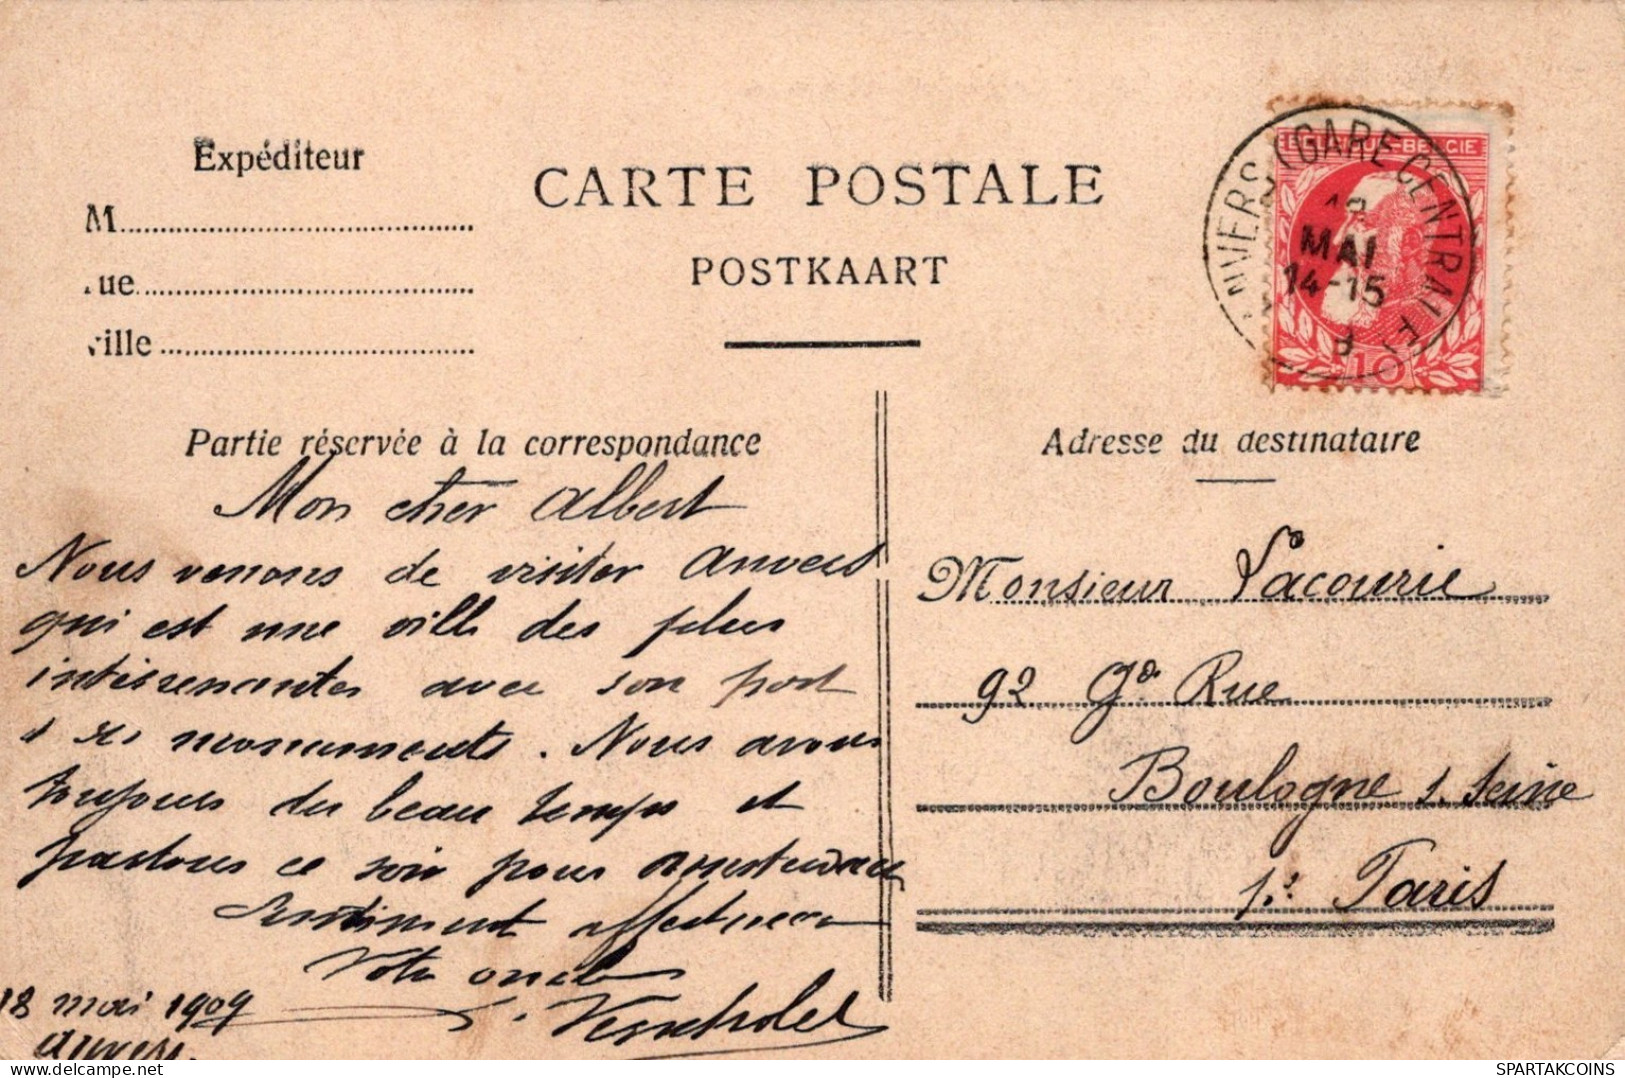 Expéditeur
M
ue
ville
CARTE POSTALE
POSTKAART
BELGIE
(GARE CENTRALE)
MAI
14-15
10
Partie réservée à la correspondance
Mon cher Albert
Nous venons de visiter Anvers
qui est une ville des plus
intéressantes avec son port
& ses monuments. Nous avons
toujours du beau temps et
partons ce soir pour Amsterdam
Sentiment affectueux
Votre oncle
18 mai 1909
Anvers.
Adresse du destinataire
Monsieur Lacourie
92 Gde Rue
Boulogne s. Seine
Ps Paris
SPARTAKCOINS